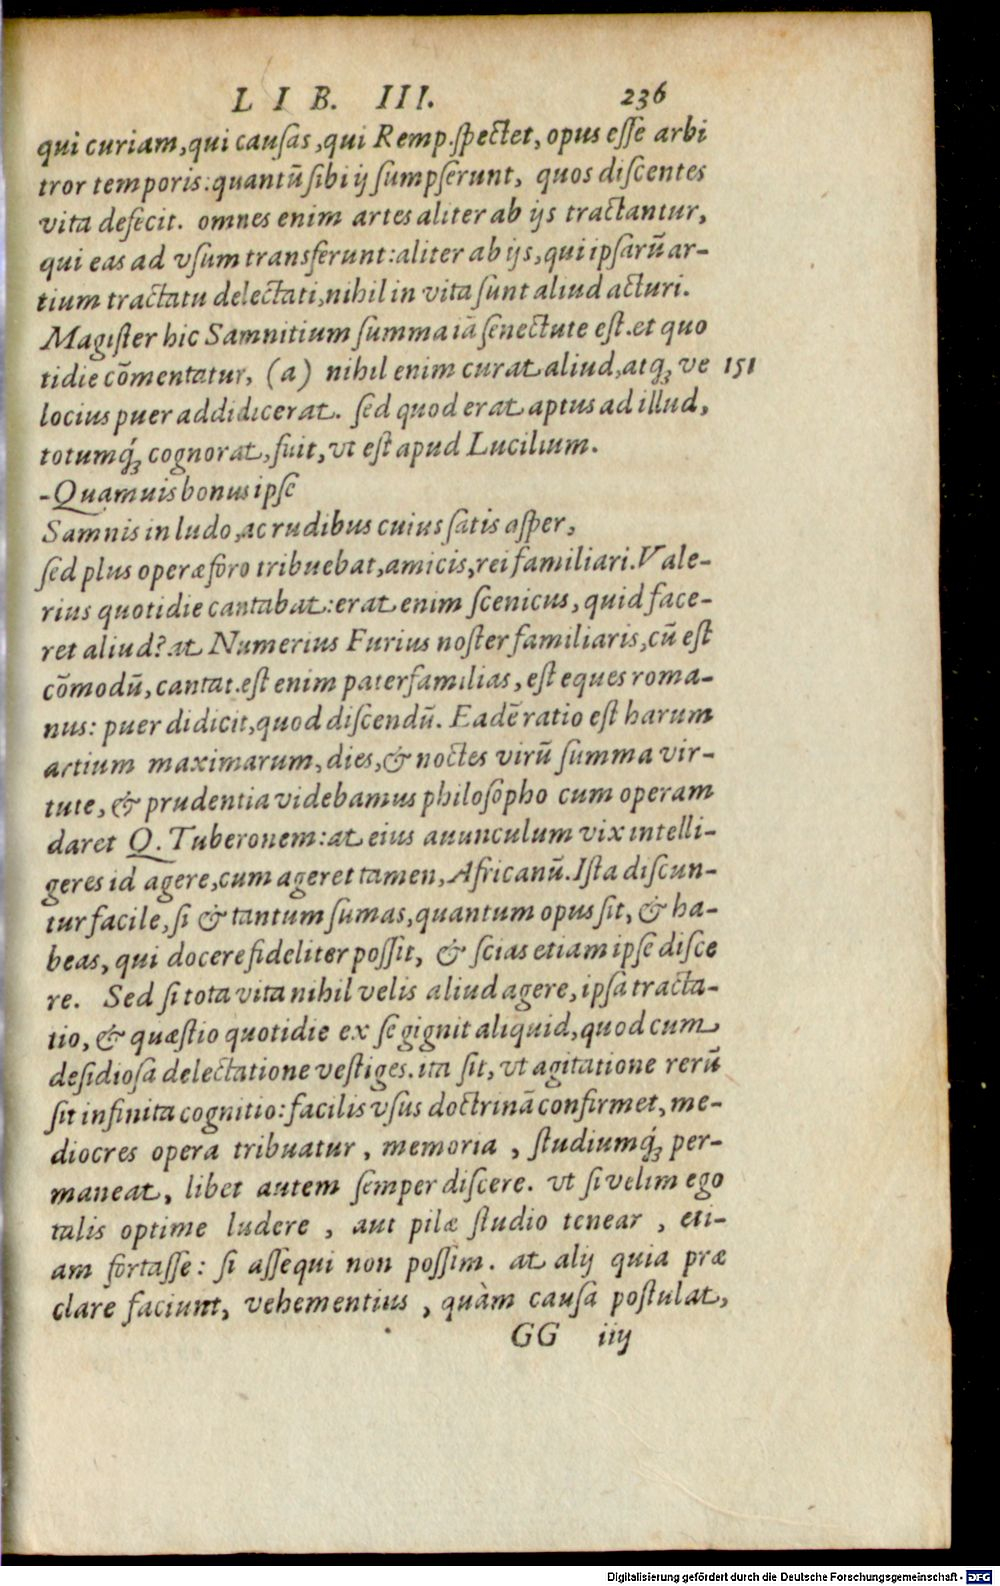 LIB. III. 236
qui curiam, qui causas, qui Remp. spectet, opus esse arbi
tror temporis: quantū sibi ij sumpserunt, quos discentes
vita defecit. omnes enim artes aliter ab ijs tractantur,
qui eas ad vsum transferunt: aliter ab ijs, qui ipsarū ar-
tium tractatu delectati, nihil in vita sunt aliud acturi.
Magister hic Samnitium summa iā senectute est. et quo
tidie cōmentatur, (a) nihil enim curat aliud, atq; ve 151
locius puer addidicerat. sed quod erat aptus ad illud,
totumq́; cognorat, fuit, vt est apud Lucilium.
-Quamuis bonus ipse
Samnis in ludo, ac rudibus cuius satis asper,
sed plus operæ foro tribuebat, amicis, rei familiari. Vale-
rius quotidie cantabat: erat enim scenicus, quid face-
ret aliud? at Numerius Furius noster familiaris, cū est
cōmodū, cantat. est enim paterfamilias, est eques roma-
nus: puer didicit, quod discendū. Eadē ratio est harum
artium maximarum, dies, & noctes virū summa vir-
tute, & prudentia videbamus philosopho cum operam
daret Q. Tuberonem: at eius auunculum vix intelli-
geres id agere, cum ageret tamen, Africanū. Ista discun-
tur facile, si & tantum sumas, quantum opus sit, & ha-
beas, qui docere fideliter possit, & scias etiam ipse disce
re. Sed si tota vita nihil velis aliud agere, ipsa tracta-
tio, & quæstio quotidie ex se gignit aliquid, quod cum
desidiosa delectatione vestiges. ita sit, vt agitatione rerū
sit infinita cognitio: facilis vsus doctrinā confirmet, me-
diocres opera tribuatur, memoria, studiumq́; per-
maneat, libet autem semper discere. vt si velim ego
talis optime ludere, aut pilæ studio tenear, eti-
am fortasse: si assequi non possim. at alij quia præ
clare faciunt, vehementius, quàm causa postulat,
GG iiij
Digitalisierung gefördert durch die Deutsche Forschungsgemeinschaft - DFG